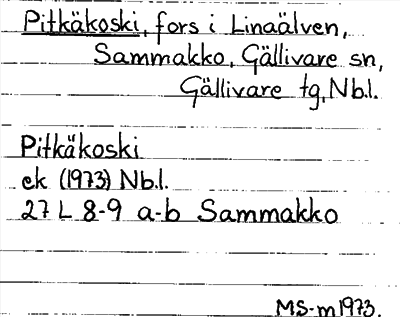 Pitkäkoski, fors i Linaälven,
Sammakko, Gällivare sn,
Gällivare tg, Nb.l.
Pitkäkoski
ek (1973) Nb.l.
27 L 8-9 a-b Sammakko
MS-m1973.